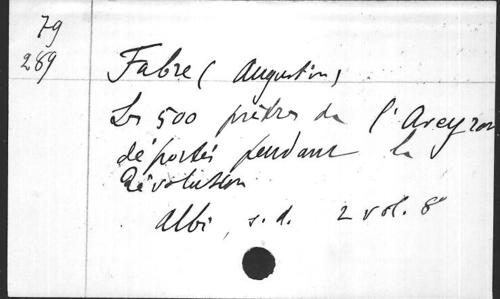 79
289
Fabre (Augustin)
Les 500 prêtres de l'Aveyron
déportés pendant la
Révolution
Albi, s.d. 2 vol. 8°